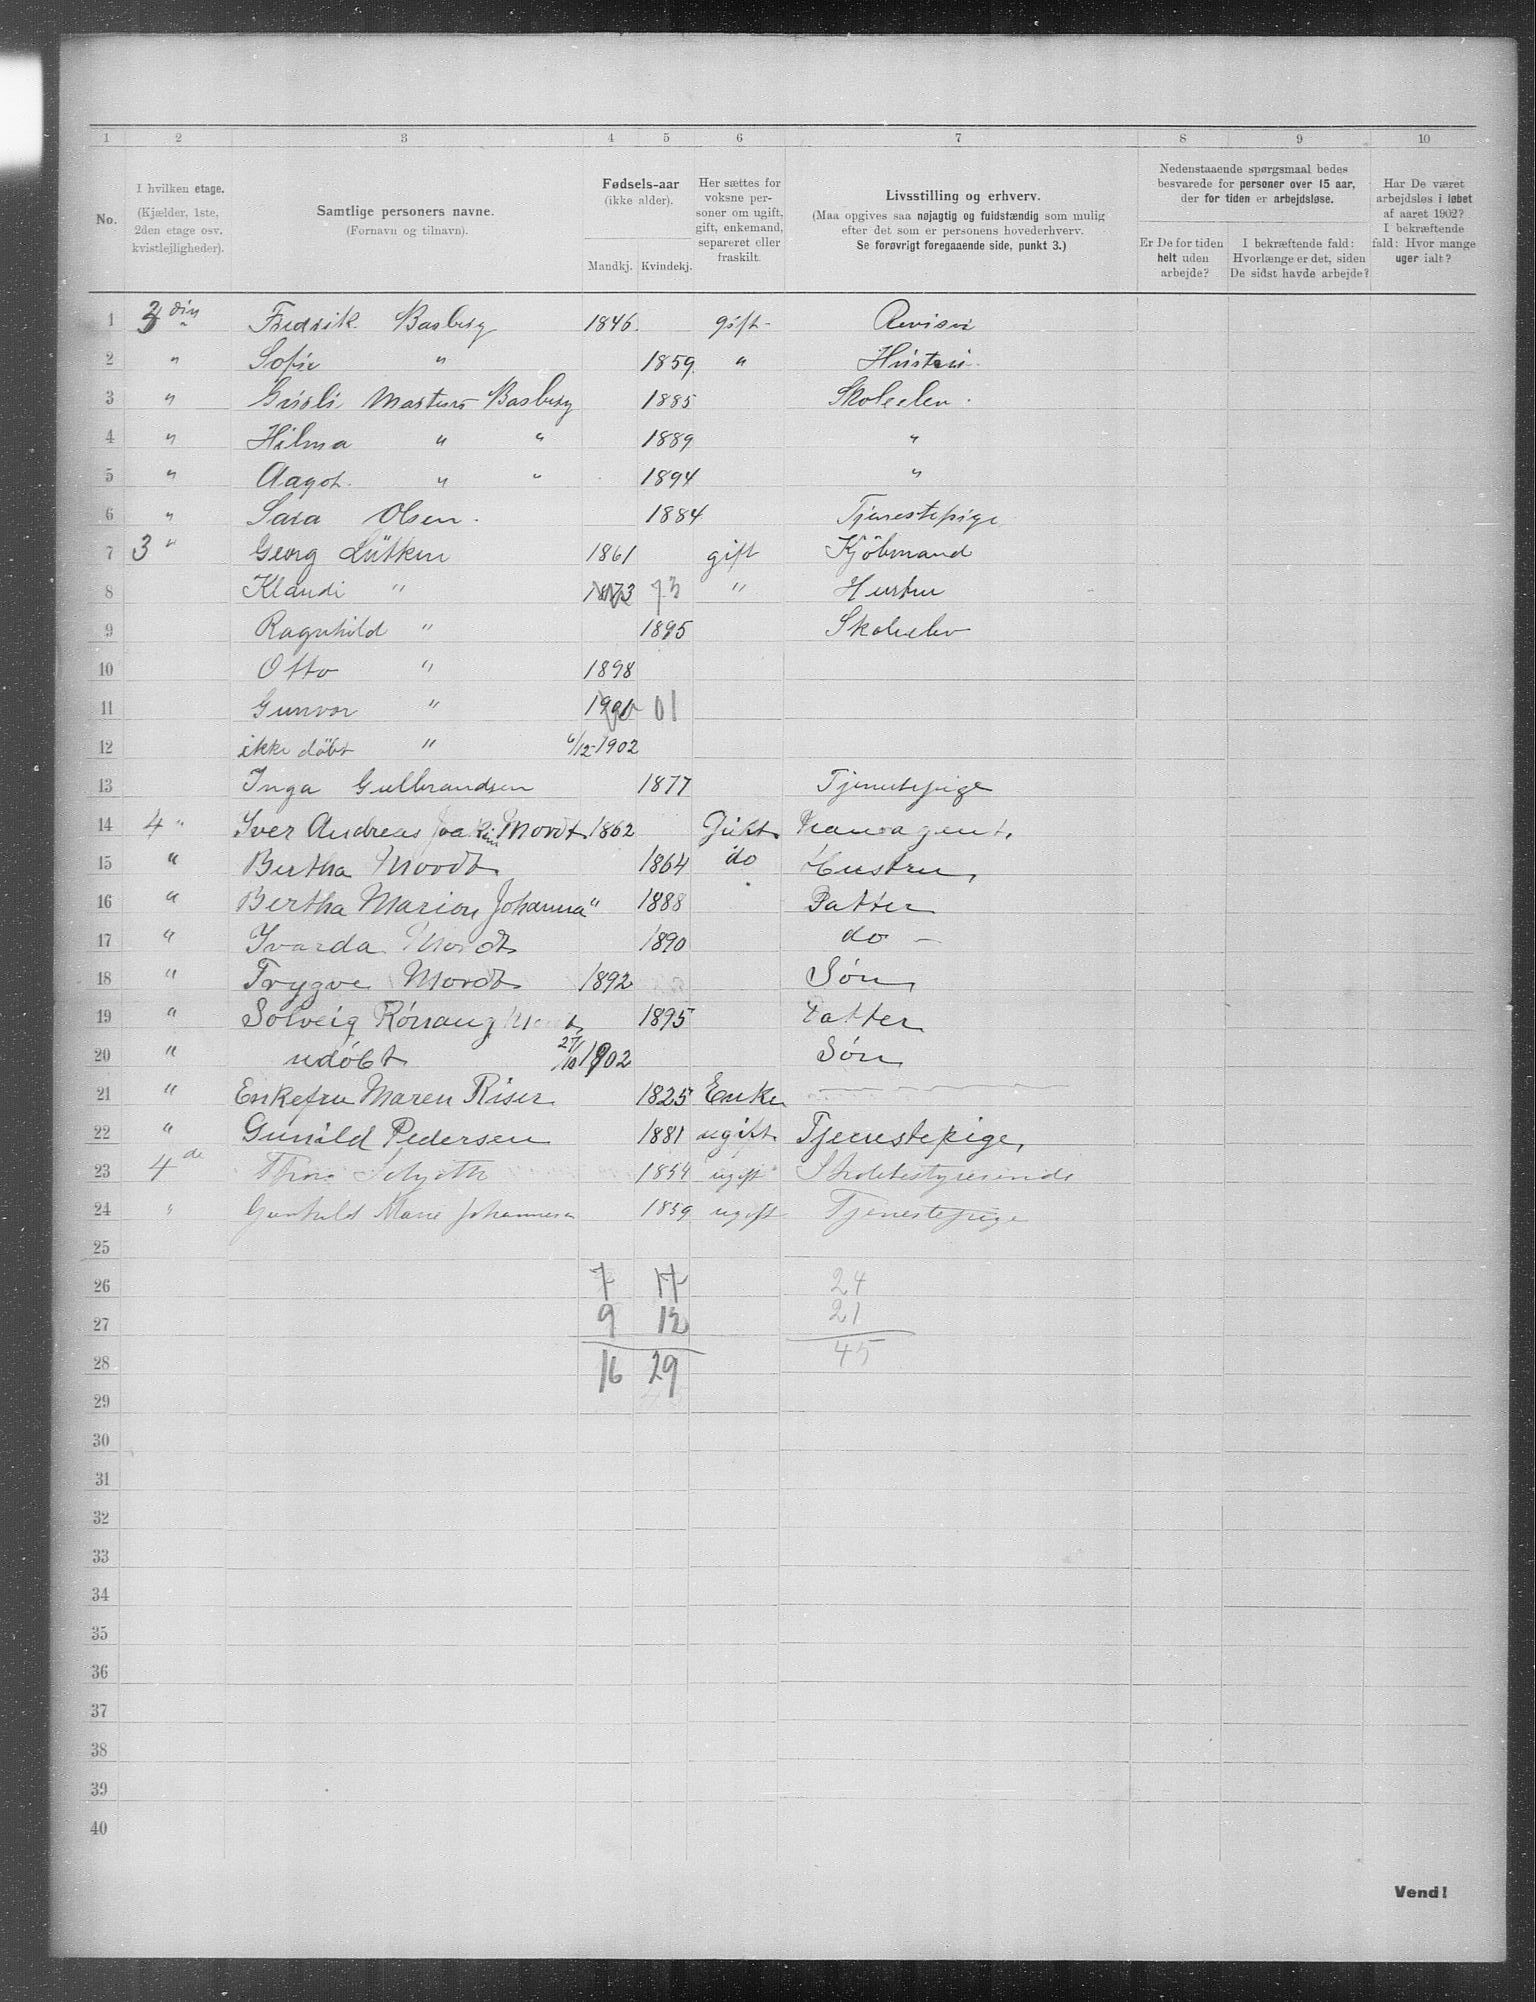 1 2 3 4 5 6 7 8 9 10
No.
I hvilken etage.
(Kjælder, 1ste,
2den etage osv.
kvistlejligheder).
Samtlige personers navne.
(Fornavn og tilnavn).
Fødsels-aar
(ikke alder).
Mandkj. Kvindekj.
Her sættes for
voksne per-
soner om ugift,
gift, enkemand,
separeret eller
fraskilt.
Livsstilling og erhverv.
(Maa opgives saa nøjagtig og fuldstændig som mulig
efter det som er personens hovederhverv.
Se forøvrigt foregaaende side, punkt 3.)
Nedenstaaende spørgsmaal bedes
besvarede for personer over 15 aar,
der for tiden er arbejdsløse.
Er De for tiden
helt uden
arbejde?
I bekræftende fald:
Hvorlænge er det, siden
De sidst havde arbejde?
Har De været
arbejdsløs i løbet
af aaret 1902?
I bekræftende
fald: Hvor mange
uger ialt?
1 3 Fredrik Basberg 1846. gift. Revisor
2 " Sofie " 1859 " Hustru
3 " Basberg 1885 Skoleelev.
4 " Hilma " " 1889 "
5 " Aagot. " " 1894 "
6 " Sara Olsen. 1884 Tjenestepige
7 3 " Georg Lütken 1861 gift Kjöbmand
8 Klaudi " 1873 73 " Hustru
9 Ragnhild " 1895 Skoleelev
10 Otto " 1898
11 Gunvor " 1901 01
12 ikke döbt " 6/12-1902
13 Inga Gulbrandsen 1877 Tjenestepige
14 4 " Iver Andreas Joakim Mordt 1862 Gift.
15 " Bertha Mordt 1864 do Hustru,
16 " Bertha Marion Johanna " 1888 Datter
17 " Ivarda Mordt 1890 do -
18 " Trygve Mordt 1892 Søn,
19 " Solveig 1895 Datter
20 " udöbt 27/10 1902 Søn
21 " Enkefru Maren Riser 1825 Enke
22 " Gunild Pedersen 1881 ugift. Tjenestepige,
23 4 de 1854 ugift Skolebestyrerinde
24 " Gunhild Marie Johannesen 1859 ugift Tjenestepige
25
26 7 17 24
27 9 12 21
28 16 29 45
29
30
31
32
33
34
35
36
37
38
39
40
Vend!